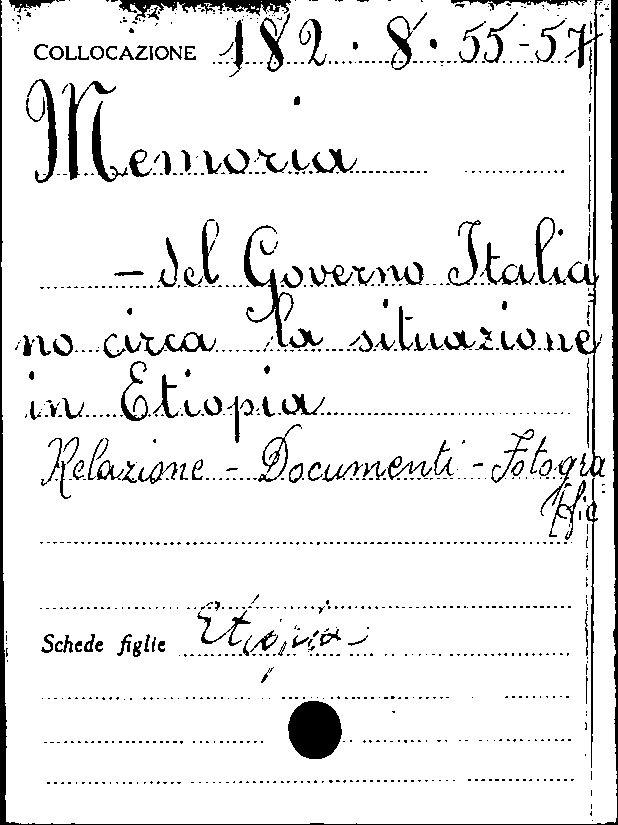 COLLOCAZIONE 182.8.55-57
Memoria
- del Governo Italia
no circa la situazione
in Etiopia
Relazione - Documenti - Fotogra
fie
Schede figlie Etiopia